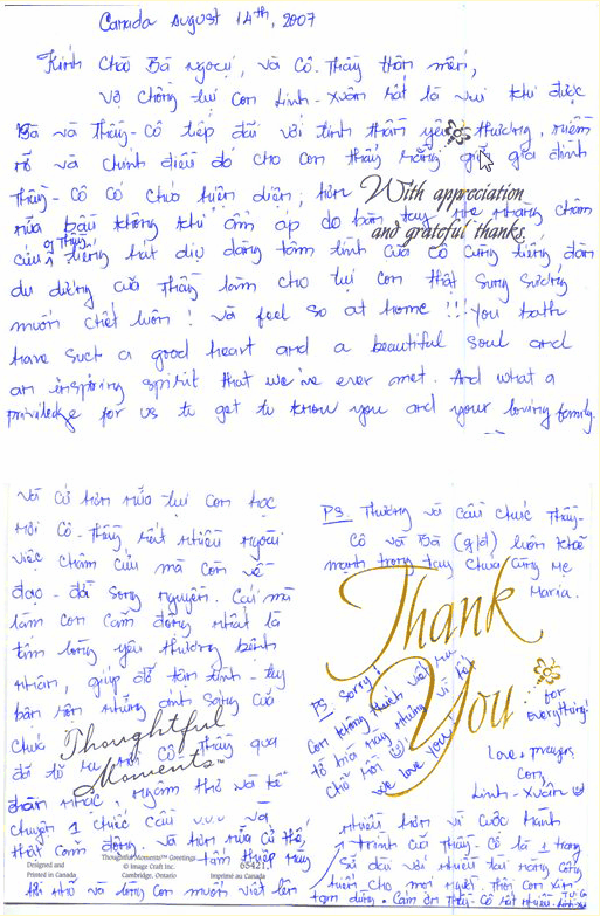 Canada August 14th, 2007
Kính Chào Bà ngoại, và Cô. Thầy thân mến,
Vợ chồng tụi Con Linh-Xuân rất là vui khi được
Bà và Thầy-Cô tiếp đãi với tinh thần yêu thương, niềm
nở và chính điều đó cho con thấy rằng giữa gia đình
Thầy-Cô có Chúa hiện diện, hơn
With appreciation
and grateful thanks.
nữa bầu không khí ấm áp do bàn tay nhẹ nhàng châm
cứu of Thầy, tiếng hát dịu dàng tâm tình của Cô cùng tiếng đàn
du dương của Thầy làm cho tụi con thật sung sướng
muốn chết luôn! và feel so at home!!! You both
have such a good heart and a beautiful soul and
an inspiring spirit that we've ever met. And what a
priviledge for us to get to know you and your loving family.
Và Cả hơn nữa tụi con học
Nơi Cô-Thầy rất nhiều ngoài
việc châm cứu mà còn về
đạo-đời song nguyền. Cái mà
làm con cảm động nhất là
tấm lòng yêu thương bệnh
nhân, giúp đỡ tận tình-tuy
bận rộn nhưng ánh sáng của
Chúa
Thoughtful
Moments
đã tỏ
Cô-Thầy qua
âm nhạc, ngâm thơ và kể
chuyện 1 chiếc cầu v.v.v và
thật cảm động và hơn nữa
Thoughtful Moments™ Greetings
© Image Craft Inc.
Cambridge, Ontario
Designed and
Printed in Canada
65421
Imprimé au Canada
và lòng con muốn viết lên
PS. Thương và cầu chúc Thầy-
Cô và Bà (g/đ) luôn khoẻ
mạnh trong tay Chúa cùng Mẹ
Maria.
Thank
You
for
everything!
PS. Sorry!
Con không thích viết
tờ bìa này nhưng vì hết
chỗ rồi
We love you
Love & prayers,
Con,
Linh-Xuân
nhiều hơn về cuộc hành
trình của Thầy-Cô là 1 trang
Sử dài với nhiều tài năng cống
hiến cho mọi người Thôi con xin
tạm dừng. Cám ơn Thầy-Cô rất nhiều.